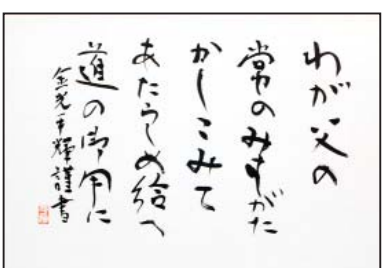 わが父の
常のみすがた
かしこみて
あたらしめ給へ
道の御用に
金光平輝謹書